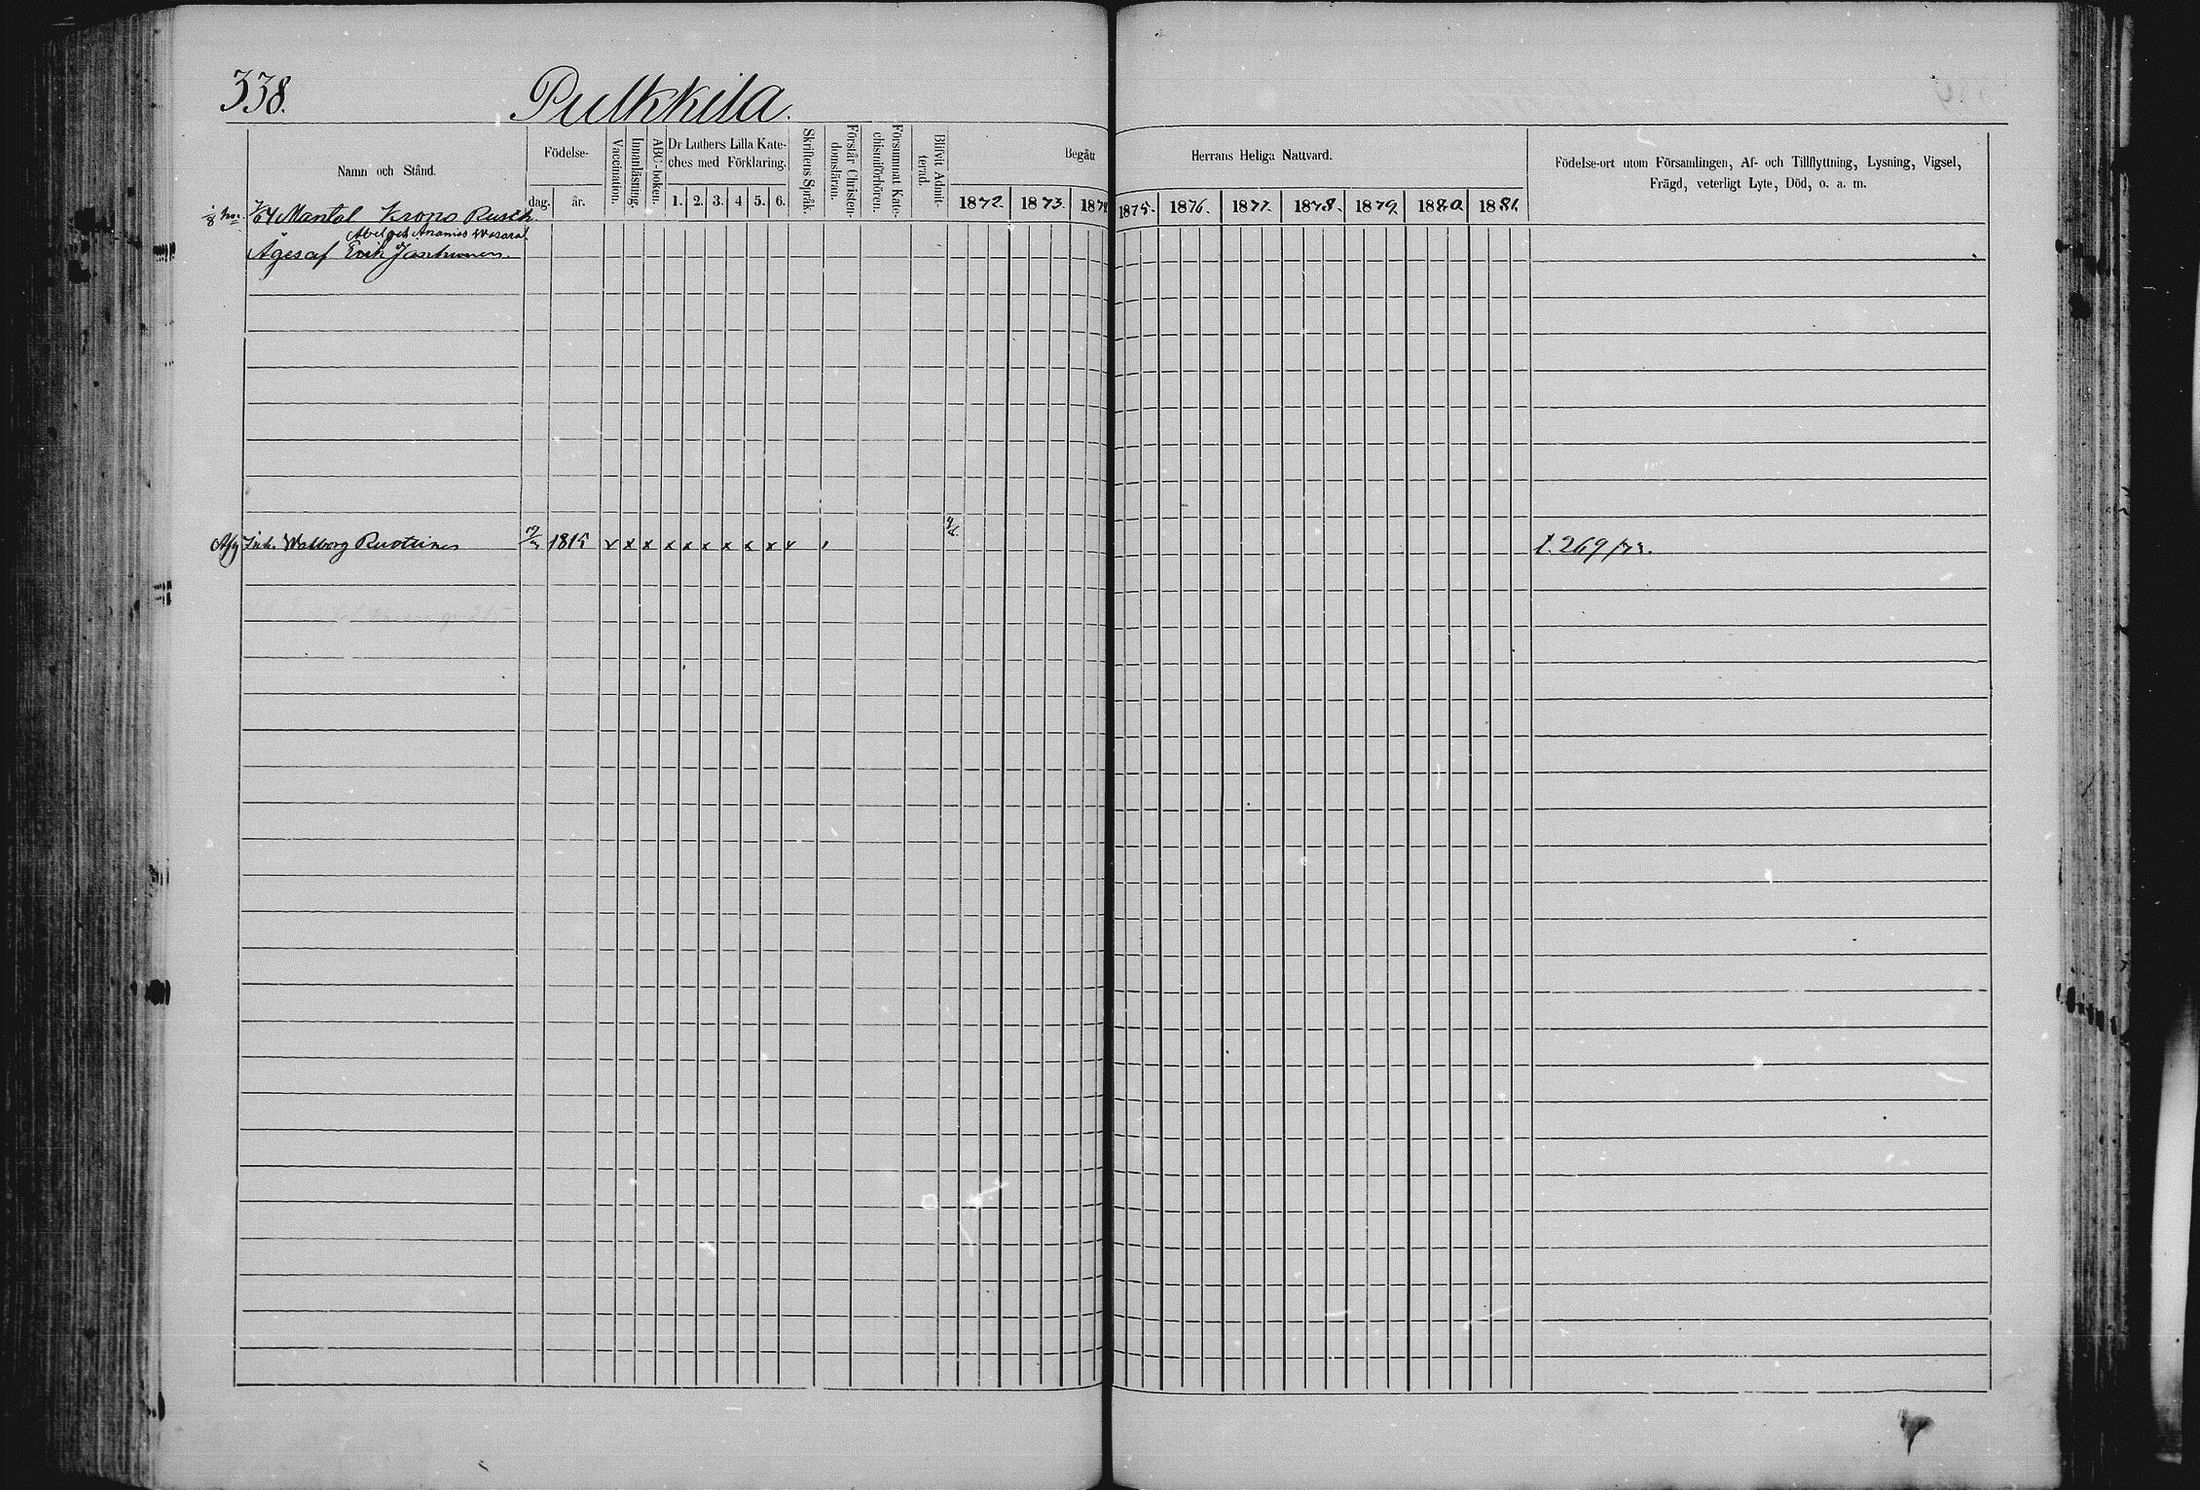 338.
Pulkkila.
Namn och Stånd.
Födelse-
dag.
år.
Vaccination.
Innanläsning.
ABC-boken.
Dr Luthers Lilla Kate-
ches med Förklaring.
1. 2. 3. 4 5. 6.
Skriftens Språk.
Förstår Christen-
domsläran.
Försummat Kate-
chismiförhören.
Blifvit Admit-
terad.
Begått
Herrans Heliga Nattvard.
1872. 1873. 1874
1875. 1876. 1877. 1878. 1879. 1880. 1881.
Födelse-ort utom Församlingen, Af- och Tillflyttning, Lysning, Vigsel,
Frägd, veterligt Lyte, Död, o. a. m.
1/64 Mantal Krono Rusth.
Abel och Ananias Wasarat
Äges af Erik Jaskunen.
Inh. Walborg Ruottinen 1815 x x x x x x x x x x
269